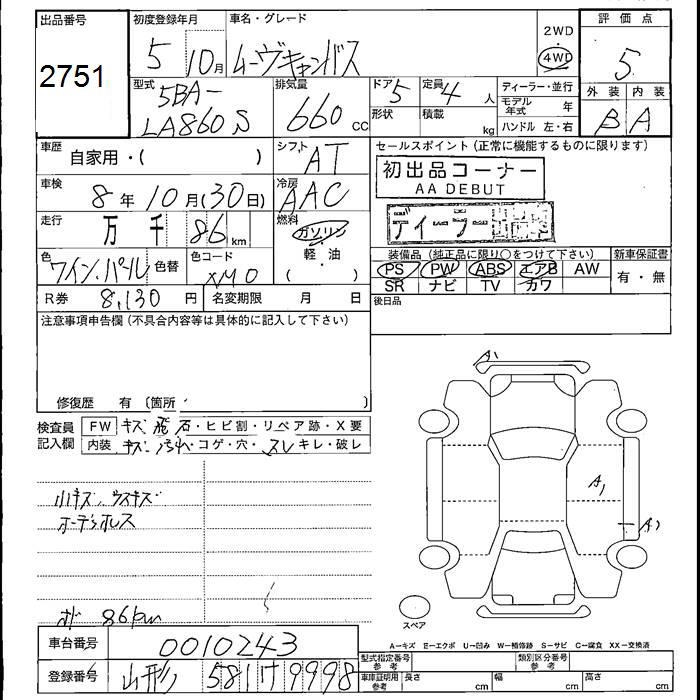 出品番号 2751
初度登録年月 5 10月
車名・グレード ムーヴキャンバス
2WD 4WD
評価点 5
外装 B 内装 A
型式 5BA-LA860S
排気量 660 cc
ドア 5
形状
定員 4 人
積載 kg
ディーラー・並行
モデル年式 年
ハンドル 左・右
車歴 自家用・( )
シフト AT
セールスポイント(正常に機能するものに限ります)
初出品コーナー
AA DEBUT
ディーラー
車検 8年 10月(30日)
冷房 AAC
走行 万 千 86 km
燃料 ガソリン 軽・油 ( )
色 ワイン.パール 色替
色コード XM0
装備品(純正品に限り○をつけて下さい)
PS PW ABS エアB AW
SR ナビ TV カワ
新車保証書 有・無
R券 8,130 円
名変期限 月 日
後日品
注意事項申告欄(不具合内容等は具体的に記入して下さい)
修復歴 有 (箇所 )
検査員記入欄
FW キズ 飛石・ヒビ割・リペア跡・X要
内装 キズ・コゲ・穴・スレ キレ・破レ
小キズ、ウスキズ
86km
A1
A1
A1
スペア
A-キズ E-エクボ U-凹み W-補修跡 S-サビ C-腐食 XX-交換済
車台番号 0010243
登録番号 山形 581 9998
型式指定番号 参考
類別区分番号 参考
車庫証明用 参考
長さ cm
幅 cm
高さ cm